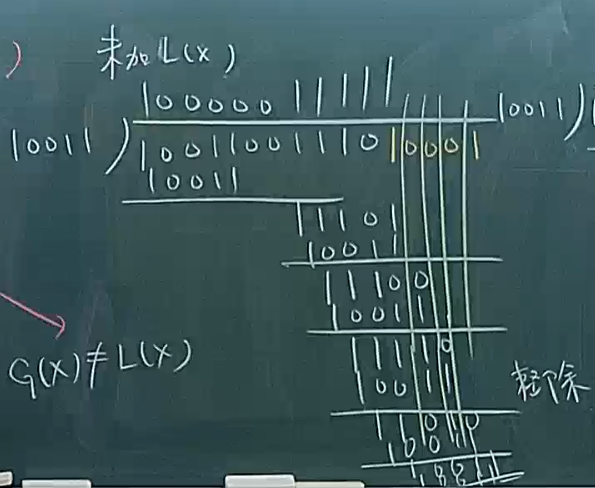 未加L(X)
10000011111
10011)10011001111010001
10011
11101
10011
11100
10011
11110
10011
G(X)≠L(X)
11010
10011
10011)
整除